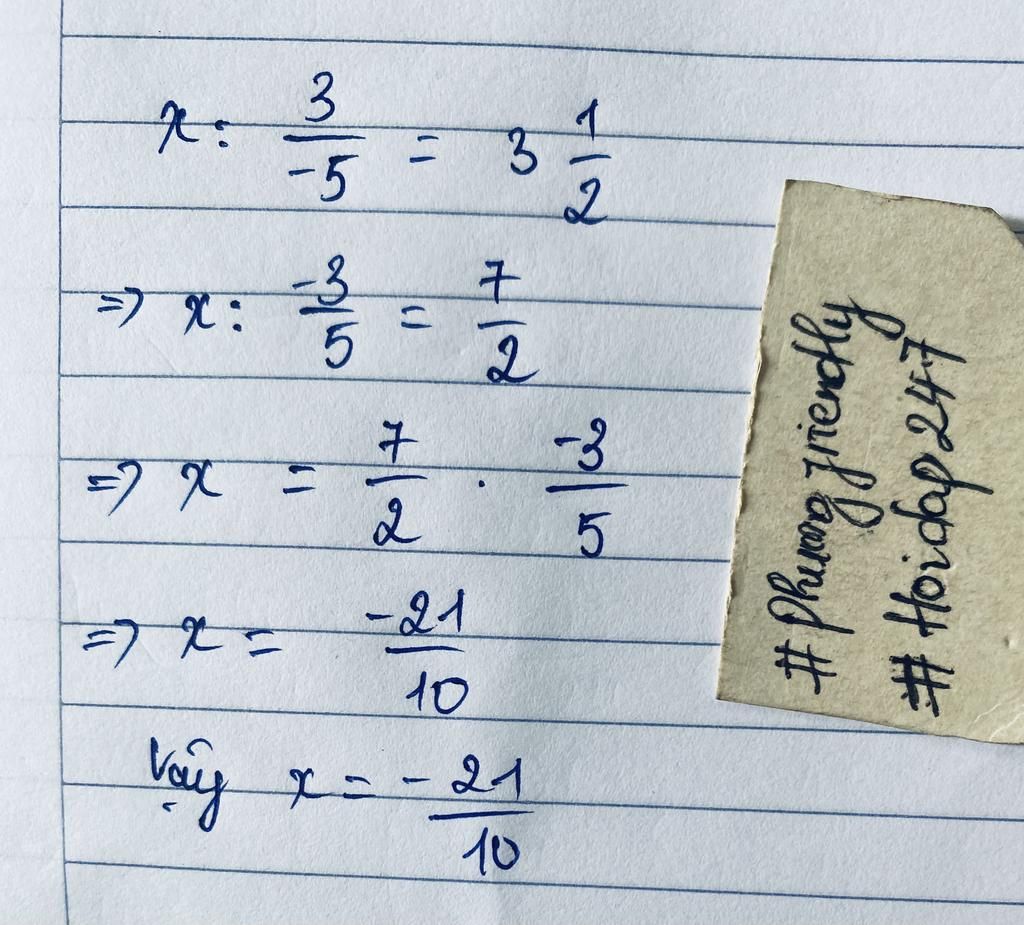 x : 3/-5 = 3 1/2
=> x : -3/5 = 7/2
=> x = 7/2 . -3/5
=> x = -21/10
Vậy x = -21/10
# Phuong friendly
# Hoidap 247